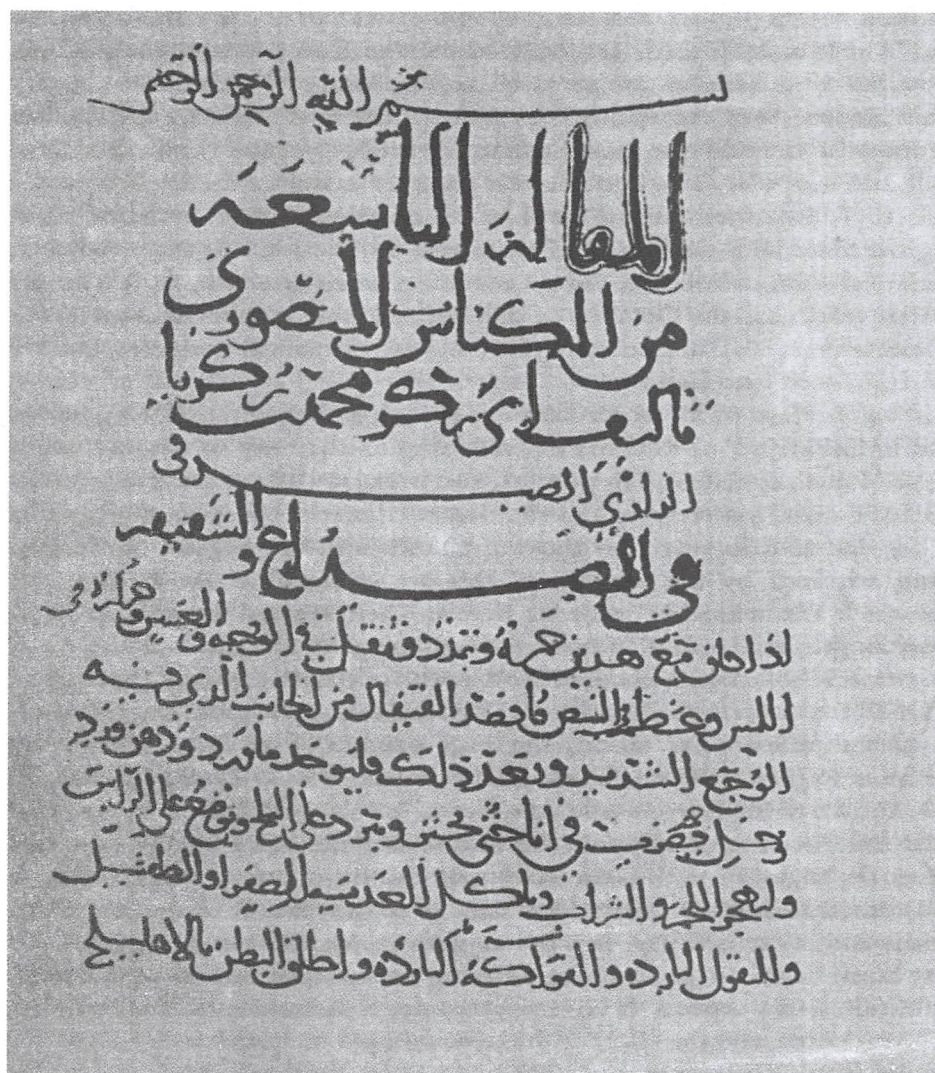 بسم الله الرحمن الرحيم
المقالة التاسعه
من الكناش المنصوري
تاليف ابي بكر محمد بن زكريا
الرازي الطبيب في
في الصداع والشقيقه
اذا كان مع هذين حمرة وتمدد وثقل في الوجه والعينين وحرارة في
اللمس وعظم النبض فافصد القيفال من الجانب الذي فيه
الوجع الشديد وبعد ذلك فليوخذ ماورد ودهن ورد
وخل فيضرب في اناحتى يخثر ويبرد على الثلج ويوضع على الراس
وليهجر اللحم والشراب وياكل العدسيه الصفرا والطفشيل
والبقول البارده والفواكه البارده واطلق البطن بالاهليلج